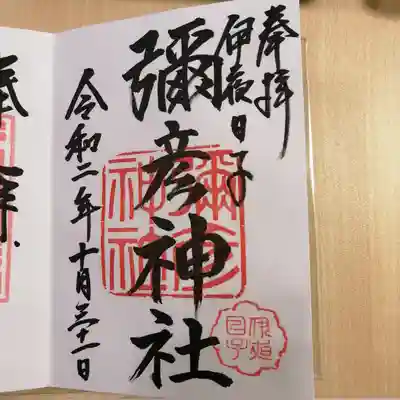 奉拝
伊夜日子
彌彦神社
彌彦
神社
令和二年十月三十一日
奉拝